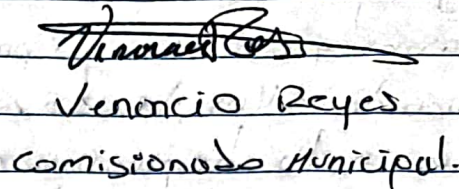 Venancio Reyes
Comisionado Municipal.